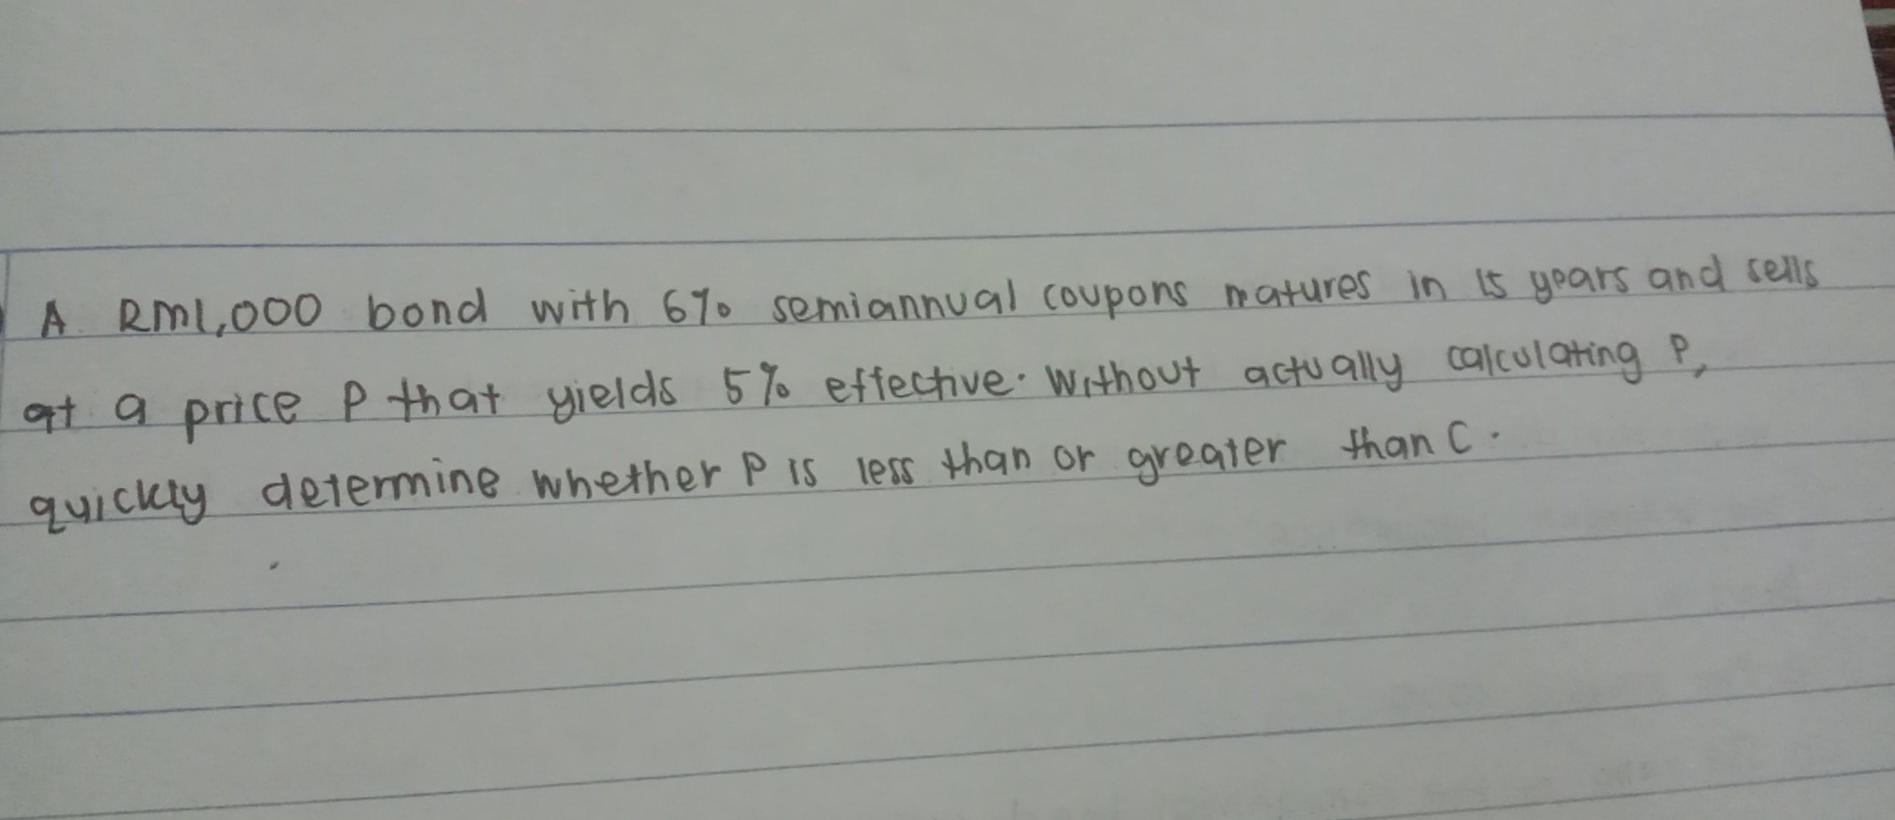 A RM1,000 bond with 6% semiannual coupons matures in 15 years and sells
at a price P that yields 5% effective. Without actually calculating P,
quickly determine whether P is less than or greater than C.